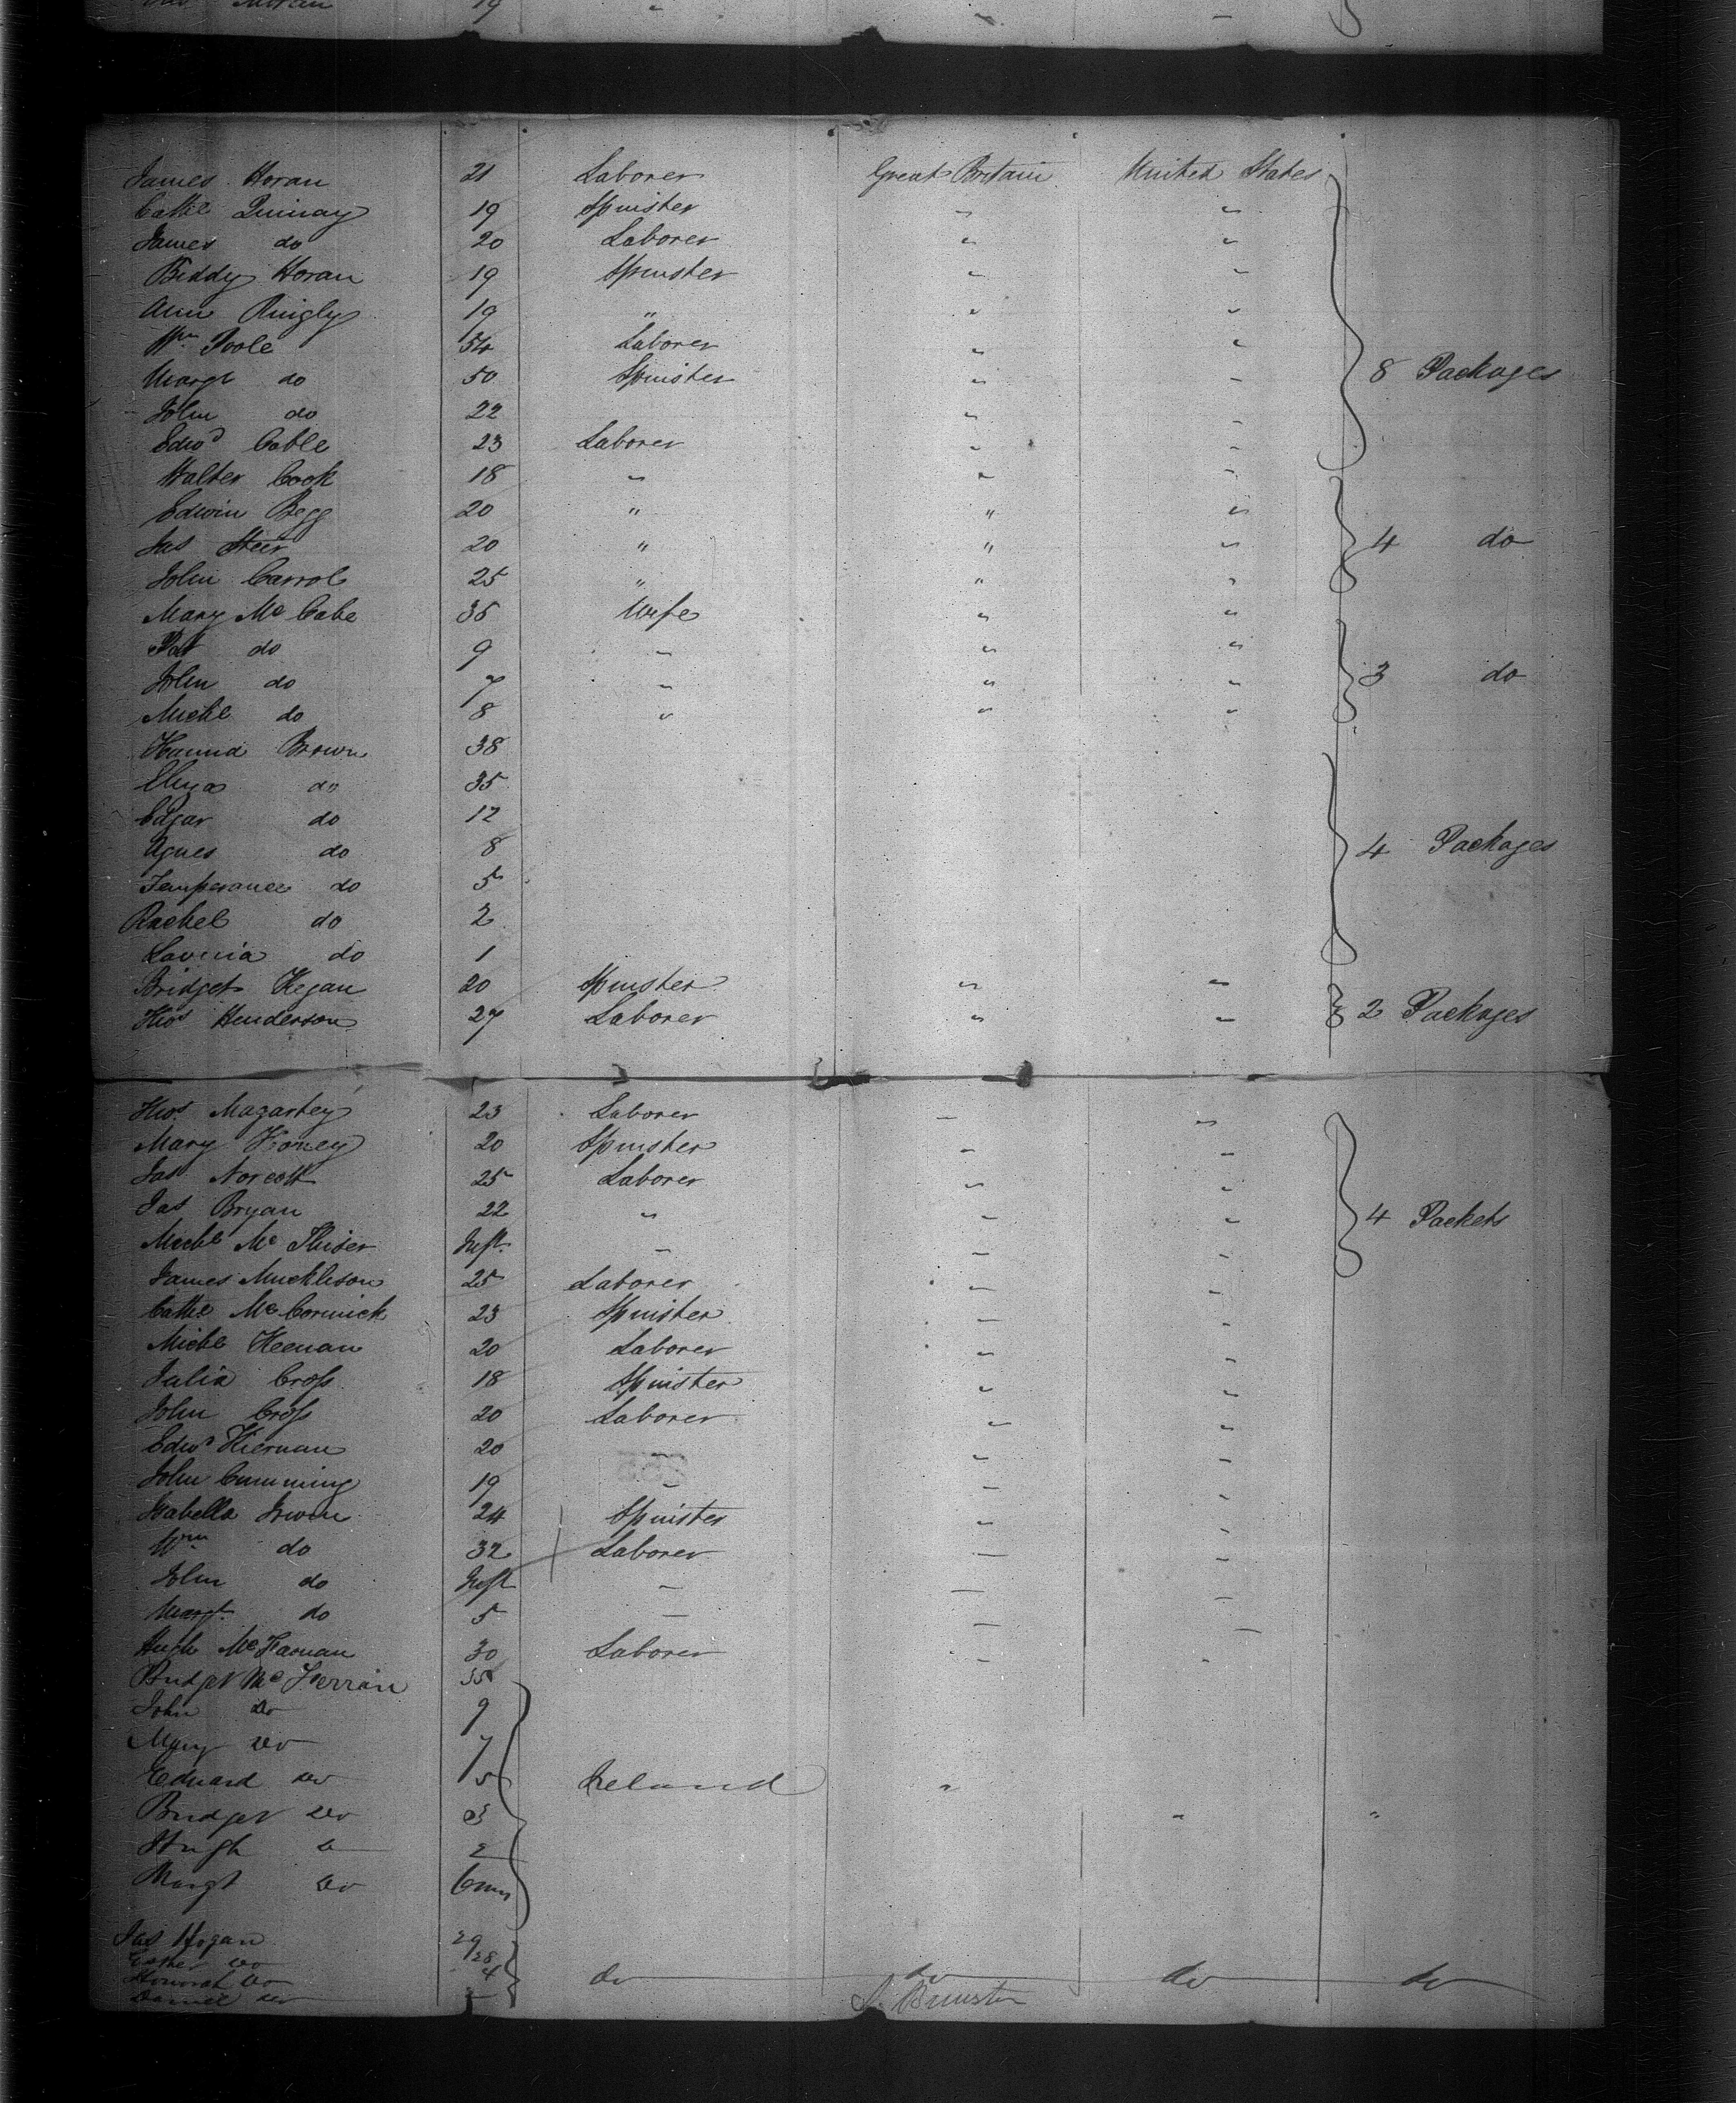 Moran 19 "
James Horan 21 Laborer Great Britain United States
Cathe Quinay 19 Spinster " "
James do 20 Laborer " "
Biddy Horan 19 Spinster " "
Ann Quigly 19 " " "
Wm Poole 54 Laborer " "
Margt do 50 Spinster " " 8 Packages
John do 22 " "
Edwd Cable 23 Laborer " "
Walter Cook 18 " " "
Edwin Begg 20 " " "
Jas Steer 20 " " " 4 do
John Carrol 25 " " "
Mary Mc Cabe 35 Wife " "
Pat do 9 " " "
John do 7 " " " 3 do
Michl do 8 " " "
Brown 38
Eliza do 35
Edgar do 12
Agnes do 8 4 Packages
Temperance do 5
Rachel do 2
Lavinia do 1
Bridget Hegan 20 Spinster " "
Thos Henderson 27 Laborer " " 2 Packages
Thos Magartey 23 Laborer " "
Mary Honey 20 Spinster " "
Jas Norcott 25 Laborer " "
Jas Bryan 22 " " " 4 Packets
Michl Mc Inft " " "
James Muckleson 25 Laborer " "
Cathe Mc Cormick 23 Spinster " "
Michl Keenan 20 Laborer " "
Julia Cross 18 Spinster " "
John Cross 20 Laborer " "
Edwd Kiernan 20 " " "
John Cumming 19 " " "
Isabella Irwin 24 Spinster " "
Wm do 32 Laborer " "
John do Inft " " "
Margt do 5 " " "
Hugh Mc 30 Laborer " "
Bridget Mc 35
John do 9
Mary do 7
Edward do 5 Ireland "
Bridget do 3 " "
Hugh do 2
Margt do 6 mos
Jas Hogan 29
Esther do 28
Honorah do 4 do do do do
Daniel do